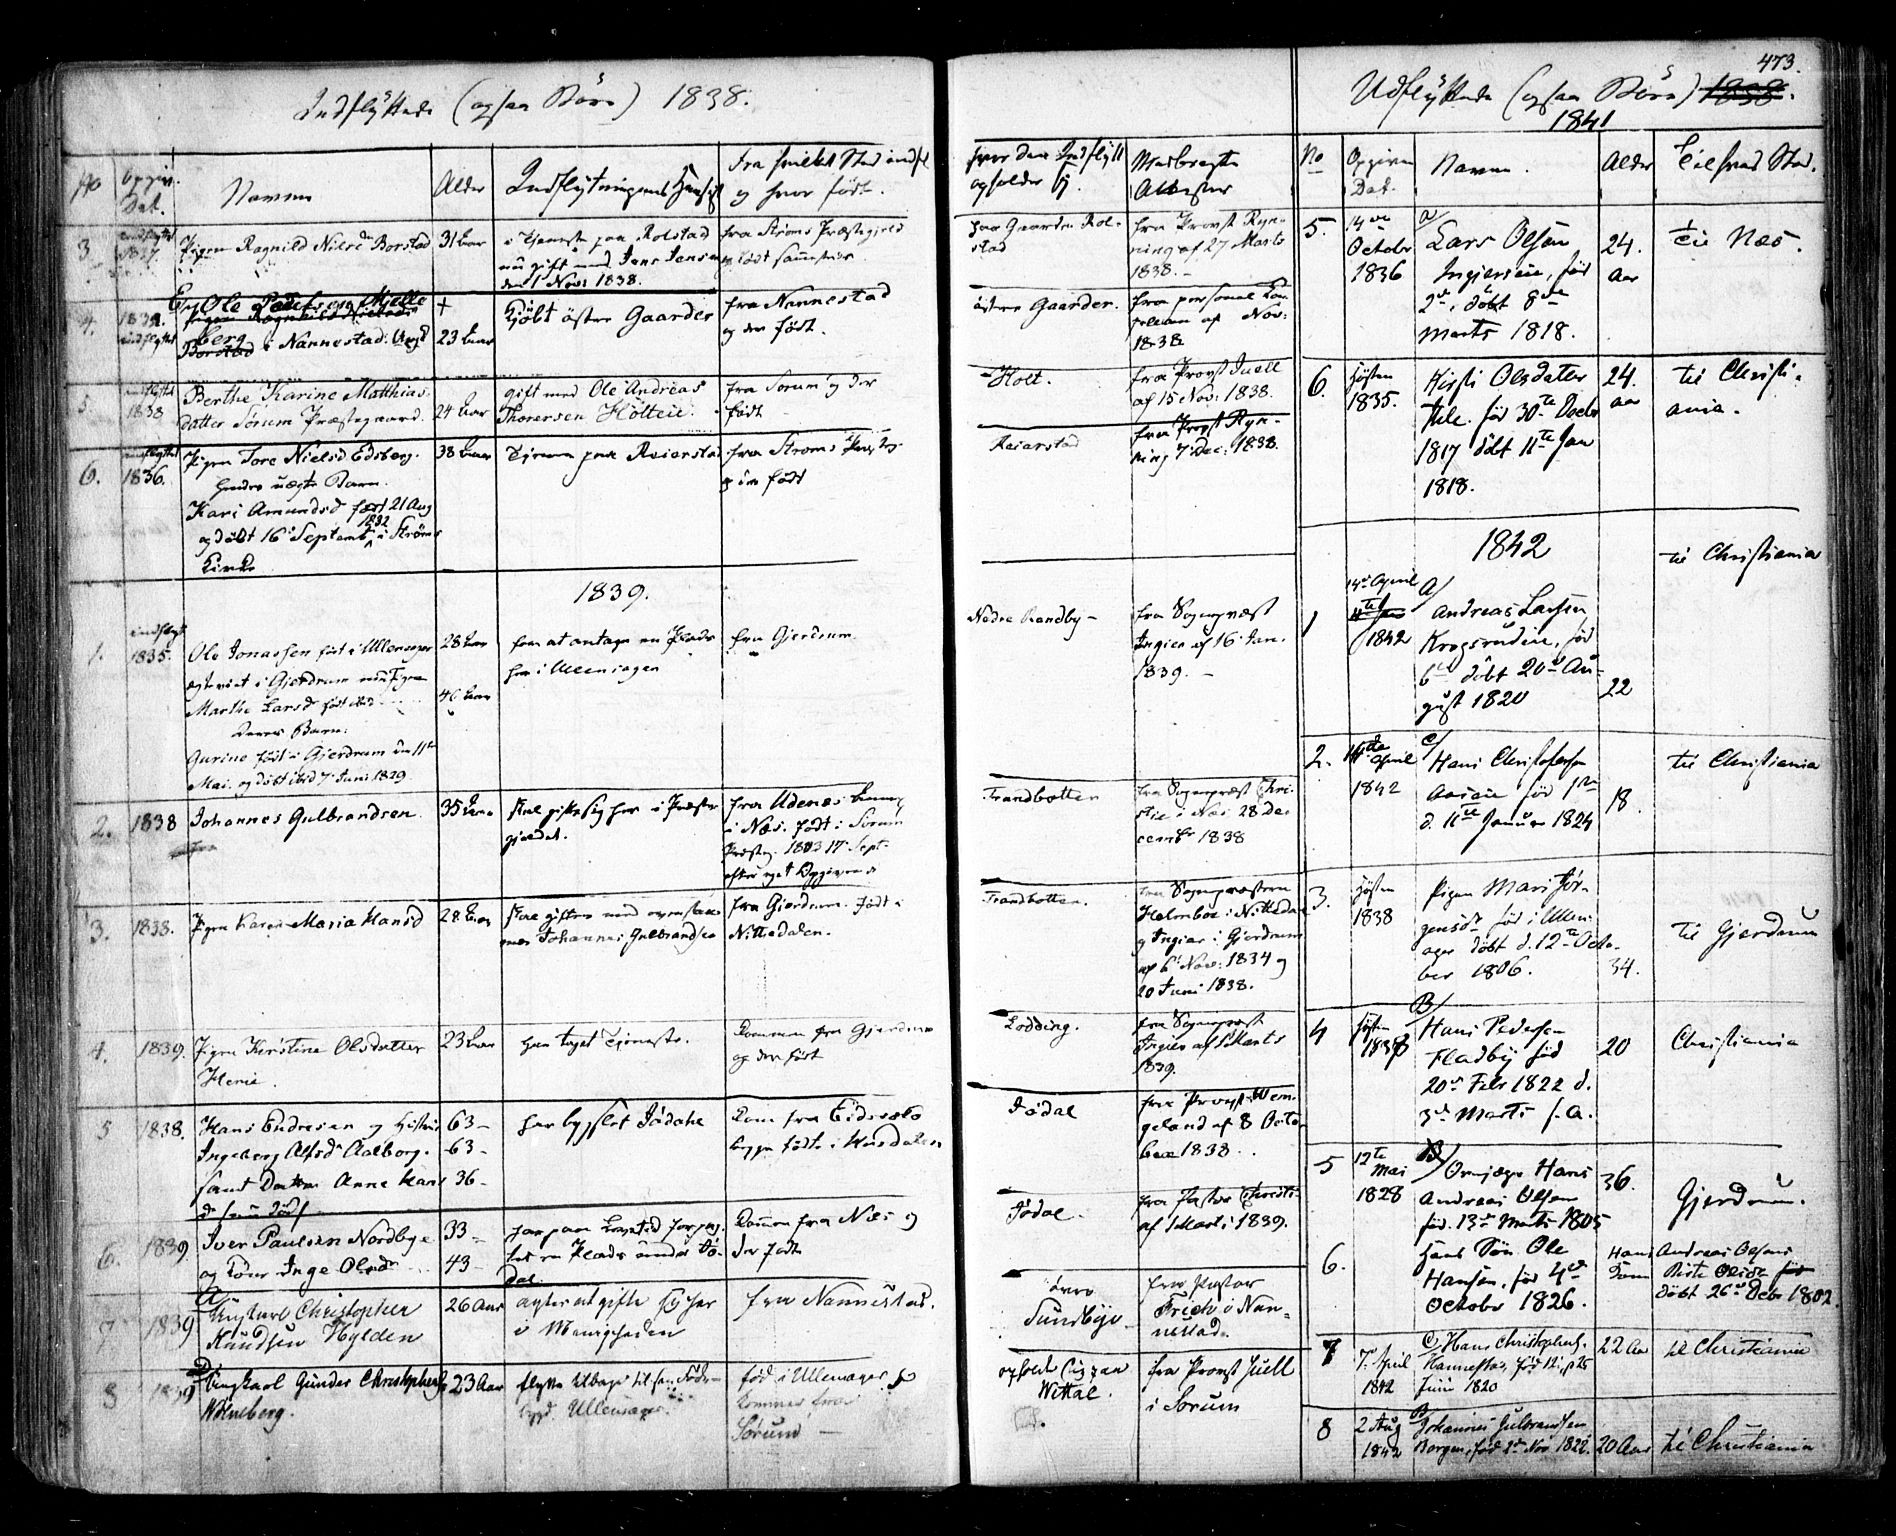 Indflyttede (ogsaa Börn) 1838.
No
Opgiv. Dat.
Navnene
Alder
Indflytningens Hensigt
fra hvilket Sted indfl
og hvor født.
hvor den Indflytt
opholder sig.
Medbragte
Attester
3
indflyttet
1827
Pigen Ragnild Nielsd. Borstad
31 Aar
i Tjeneste paa Rolstad
nu gift med Jens Jensen
den 1 Nov: 1838.
fra Ströms Præstegjeld
og født sammesteds
paa Gaarden Rol-
stad
fra Provst Ryn-
ning af 27 Marts
1838. –
4.
1838.
indflyttet
Ole Pedersen Kjelle
berg i Nannestad. Ungk
23 Aar
Kjöbt östre Gaarder
fra Nannestad
og der født.
östre Gaarder.
fra personel Cap-
pellan af Nov:
1838
5
indflyttet
1838
Berthe Karine Matthias-
datter Sørum Præstegaard.
24 Aar
gift med Ole Andreas
Thoresen Hölteie.
fra Sorum og der
født
Holt.
fra Provst Juell
af 15 Nov: 1838.
6.
indflyttet
1836.
Pigen Tore Nielsd Edsberg.
hendes uægte Barn
Kari Amundsd født 21 Aug
1832
og döbt 16 Septemb i Ströms
Kirke
38 Aar
Tjener paa Reierstad
fra Ströms Præstegj
og der født
Reierstad
fra Provst Ryn-
ning 7 Dec: 1838.
1839.
1.
indflyt
1835.
Ole Jonassen født i Ullensager
ægteviet i Gjerdrum med Pigen
Marthe Larsd født ibid
Deres Barn:
Gurine født i Gjerdrum den 11te
Mai og döbt ibid 7 Juni 1829
28 Aar
40 Aar
for at antage en Plads
her i Ullensager
fra Gjerdrum
Nedre Randby –
fra Sognepræst
Ingier af 16 Jan.
1839. –
2.
1838
Johannes Gulbrandsen
35 Aar
skal gifte sig her i Præste
gjeldet.
fra Udenæs Annex
i Næs. født i Sorum
Præsteg. 1803 17 Sept.
efter eget Opgivende
Trandbotten
fra Sognepræst Chri-
stie i Næs 28 De-
cembr 1838
3.
1838.
Pigen Karen Maria Hansd
28 Aar
skal giftes med ovenstaae
nde Johannes Gulbrandsen
fra Gjerdrum. født i
Nittedalen.
Trandbotten.
fra Sognepræsterne
Holmboe i Nittedal
og Ingier i Gjerdrum
af 6 Nov: 1834 og
20 Juni 1838.
4.
1839.
Pigen Kirstine Olsdatter
Hexie.
23 Aar
her taget Tjeneste.
Kommen fra Gjerdrum
og der født
Lodding.
fra Sognepræst
Ingier af Marts
1839.
5
1838.
Hans Endresen og Hustru
Ingeborg Alfsd Aalborg.
samt Datter Anne Hans
d
63 –
63 –
36 –
har bygslet Jödahl
Kom fra Eidsvold
begge födte i Hurdalen
Jödal
fra Provst Wer-
geland af 8 Octo
ber 1838.
6.
1839
Iver Paulsen Nordbye
og Kone Inge Olsdr
33 –
43 –
har paa Livstid forpag-
tet en Plads under Jö-
dal
Kommen fra Næs og
der født
Jödal.
fra Pastor Christie
af Mart. 1839.
7
1839
A
Ungkarl Christopher
Knudsen Hylden
26 Aar
agter at gifte sig her
i Menigheden
fra Nannestad.
övre
Sundbye
fra Pastor
Frich i Nan-
nestad.
8
1839
Ungkarl Gunder Christophers
Wolneberg.
23 Aar
flytte tilbage til sin Føde-
bygd. Ullensager.
født i Ullensager og
kommer fra
Sörum –
opholde sig paa
Wettal.
fra Provst Juell
i Sorum
473.
Udflyttede (ogsaa Börn) 1838.
1841
No
Opgiven
Dat.
Navnene.
Alder
Til hvad Sted.
5.
14de
Octobr
1836
a/
Lars Olsen
Ingiereie, föd
2de, döbt 8de
Marts 1818.
24.
aar
til Næs.
6.
Hösten
1835.
Kirsti Olsdatter
föd 30te Decbr
1817 döbt 11te Jan
1818.
24.
aar
til Christi-
ania.
1842
1
14de April
1842
A/
Andreas Larsen
Krogsrudeie, föd
6te döbt 20de Au-
gust 1820
22
til Christiania
2.
14de
April
1842
c/
Hans Christophersen
Aaseie föd 1ste
d. 11te Januar 1824
18.
til Christiania
3.
Hösten
1838
Pigen Mari Jör-
gensdr föd i Ullen-
ager döbt d. 12te Octo-
ber 1806.
34.
til Gjerdrum
4
Hösten
1838
B/
Hans Pedersen
Fladby föd
20de Febr 1822 d.
3de Marts s. A.
20
Christiania
5
12te
Mai
1828
B/
Hans
Andreas Olsen
föd. 13de Marts 1805
36.
Gjerdrum.
6.
Hans Sön Ole
Hansen, föd 4de
October 1826.
Hans Andreas Olsens
Kone Birte Olsdr
döbt 26de Decbr 1802.
7
7. April
1842
C/ Hans Christophers.
Hannestad, föd 12, d. 25
Juni 1820
22 Aar
til Christiania
8
2 Aug
1842
B
Johannes Gulbrandsen
Borgen, föd 2de Nov 1822.
20 Aar
til Christiania